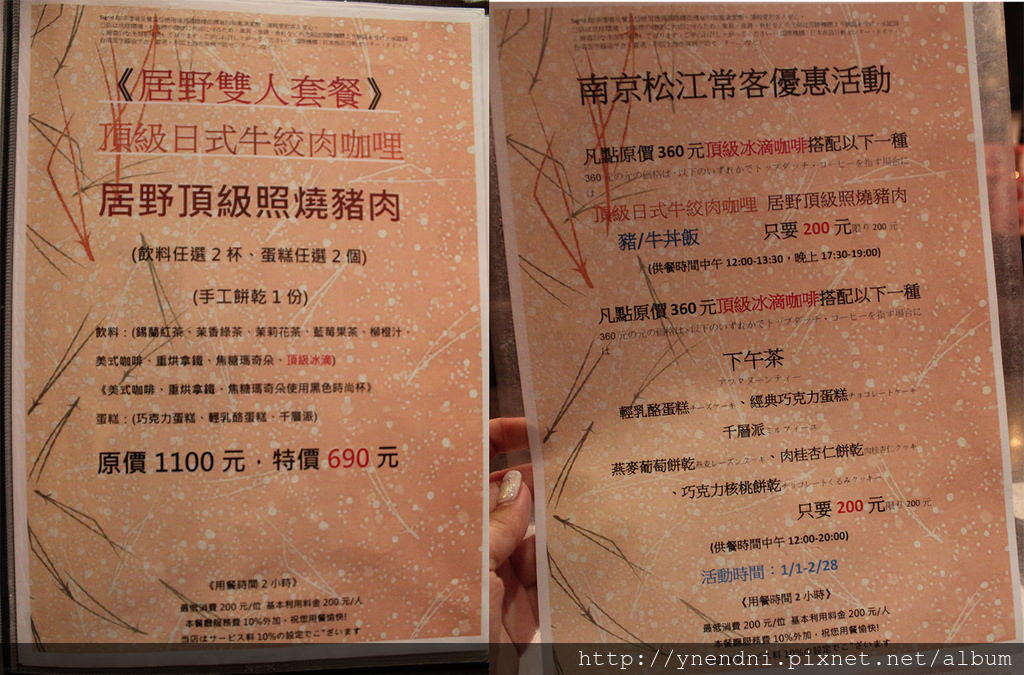 《居野雙人套餐》
頂級日式牛絞肉咖哩
居野頂級照燒豬肉
(飲料任選 2 杯、蛋糕任選 2 個)
(手工餅乾 1 份)
飲料：(錫蘭紅茶、茉香綠茶、茉莉花茶、藍莓果茶、柳橙汁、
美式咖啡、重烘拿鐵、焦糖瑪奇朵、頂級冰滴)
《美式咖啡、重烘拿鐵、焦糖瑪奇朵使用黑色時尚杯》
蛋糕：(巧克力蛋糕、輕乳酪蛋糕、千層派)
原價 1100 元，特價 690 元
《用餐時間 2 小時》
最低消費 200 元/位 基本利用料金 200 元/人
本餐廳服務費 10%外加，祝您用餐愉快!
当店はサービス料 10%の設定でございます
南京松江常客優惠活動
凡點原價 360 元頂級冰滴咖啡搭配以下一種
360 元の元の価格は、以下のいずれかでトップダッチ・コーヒーを指す場合に
は
頂級日式牛絞肉咖哩 居野頂級照燒豬肉
豬/牛丼飯 只要 200 元限り 200 元
(供餐時間中午 12:00-13:30，晚上 17:30-19:00)
凡點原價 360 元頂級冰滴咖啡搭配以下一種
360 元の元の価格は、以下のいずれかでトップダッチ・コーヒーを指す場合に
は
下午茶
アフタヌーンティー
輕乳酪蛋糕チーズケーキ、經典巧克力蛋糕チョコレートケーキ
千層派ミルフィーユ
燕麥葡萄餅乾燕麦レーズンクッキー、肉桂杏仁餅乾肉桂杏仁クッキー
、巧克力核桃餅乾チョコレートくるみクッキー
只要 200 元限り 200 元
(供餐時間中午 12:00-20:00)
活動時間：1/1-2/28
《用餐時間 2 小時》
最低消費 200 元/位 基本利用料金 200 元/人
本餐廳服務費 10%外加，祝您用餐愉快!
ービス料 10%の設定でございます
http://ynendni.pixnet.net/album